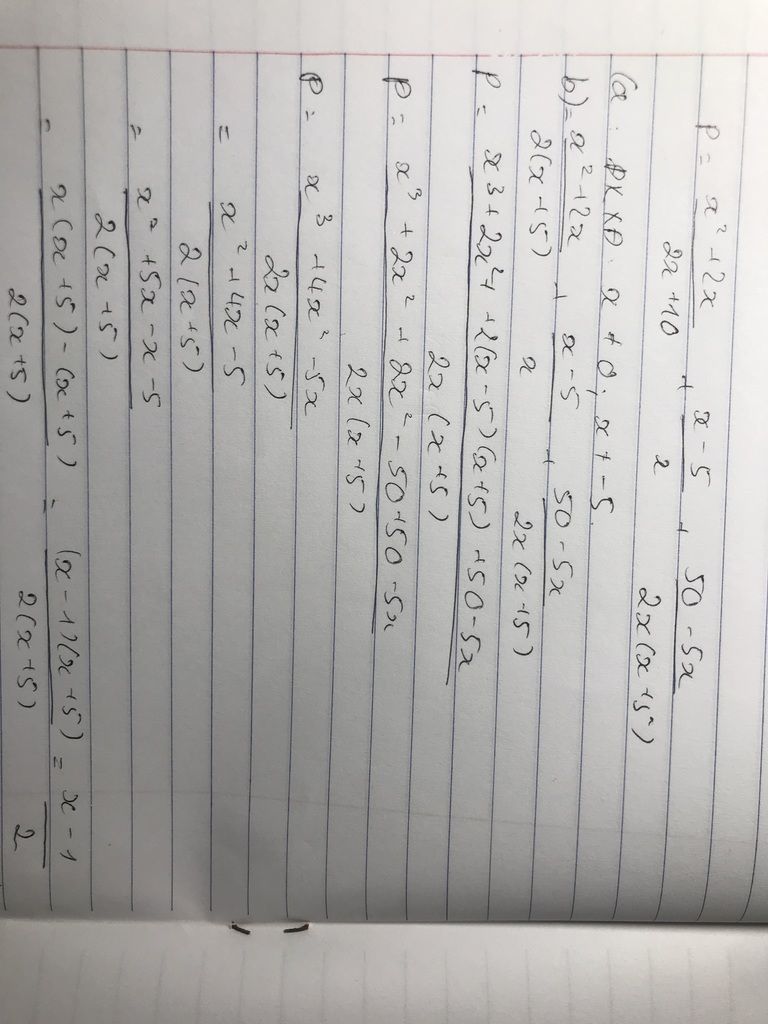 P = x² + 2x / 2x + 10 + x - 5 / x + 50 - 5x / 2x(x + 5)
(a. ĐKXĐ. x ≠ 0; x ≠ -5.
b) = x² + 2x / 2(x + 5) + x - 5 / x + 50 - 5x / 2x(x + 5)
P = x³ + 2x² + 2(x - 5)(x + 5) + 50 - 5x / 2x(x + 5)
P = x³ + 2x² + 2x² - 50 + 50 - 5x / 2x(x + 5)
P = x³ + 4x² - 5x / 2x(x + 5)
= x² + 4x - 5 / 2(x + 5)
= x² + 5x - x - 5 / 2(x + 5)
= x(x + 5) - (x + 5) / 2(x + 5) = (x - 1)(x + 5) / 2(x + 5) = x - 1 / 2